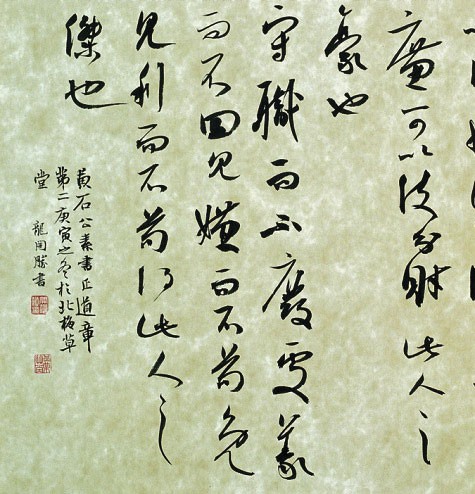 廉可以使分財此人之
豪也
守職而不廢處義
而不回見嫌而不苟免
見利而不苟得此人之
傑也
黄石公素書正道章
第二庚寅之冬於北草
堂 龍開勝書